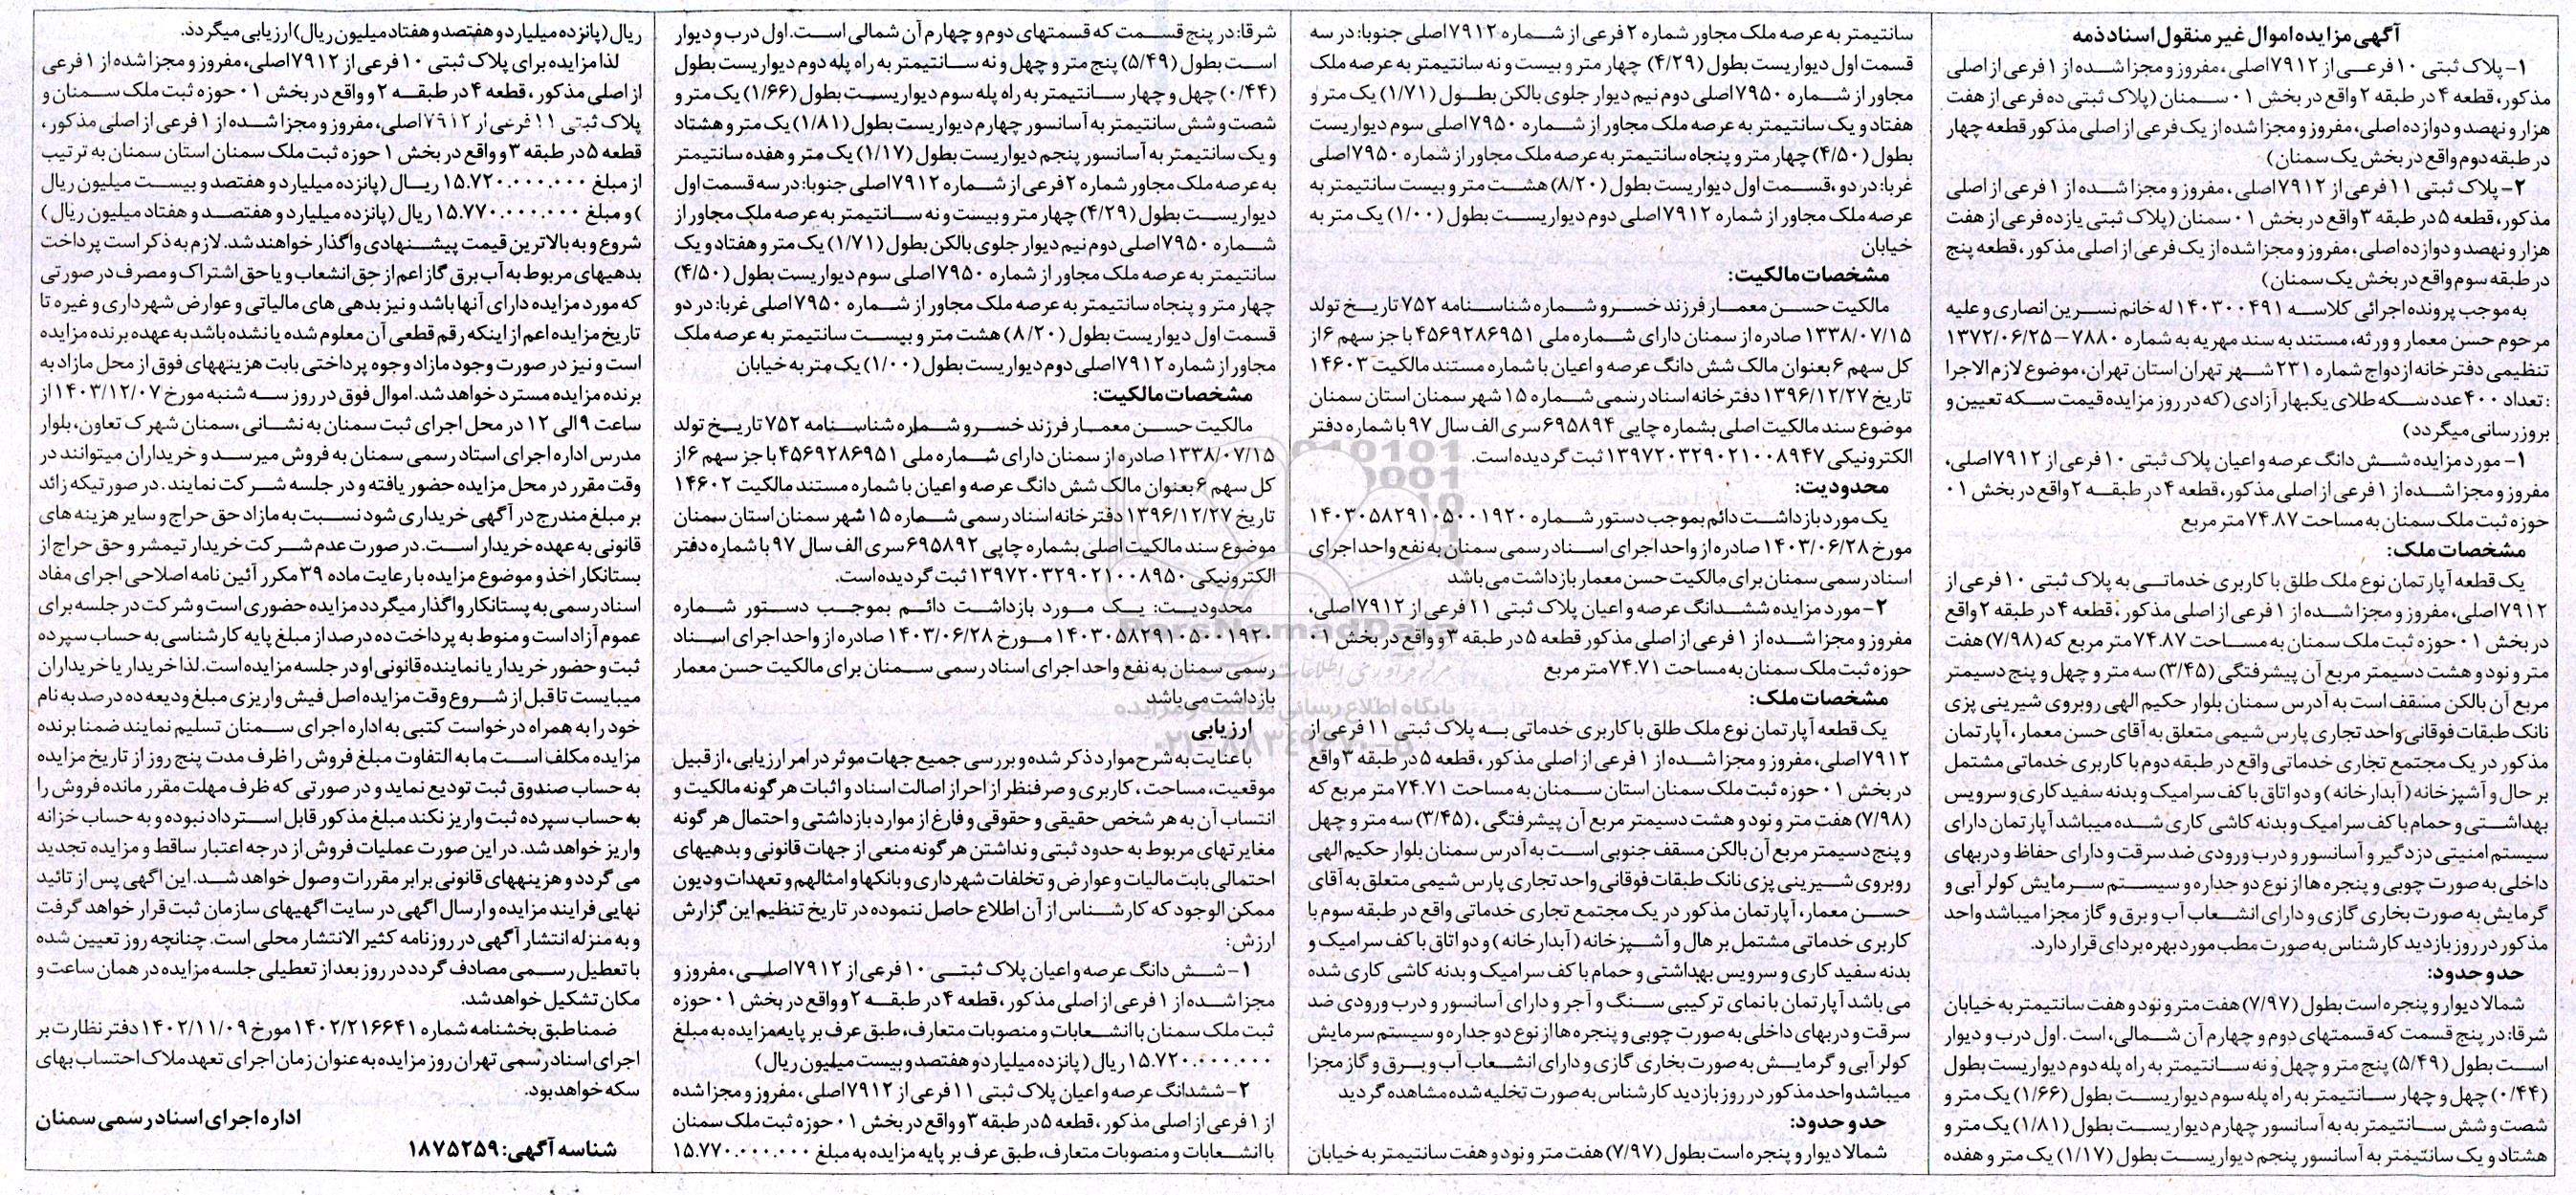 آگهی مزایده اموال غیر منقول اسناد ذمه
۱- پلاک ثبتی ۱۰ فرعی از ۷۹۱۲ اصلی، مفروز و مجزا شده از ۱ فرعی از اصلی
مذکور، قطعه ۴ در طبقه ۲ واقع در بخش ۰۱ سمنان (پلاک ثبتی ده فرعی از هفت
هزار و نهصد و دوازده اصلی، مفروز و مجزا شده از یک فرعی از اصلی مذکور قطعه چهار
در طبقه دوم واقع در بخش یک سمنان)
۲- پلاک ثبتی ۱۱ فرعی از ۷۹۱۲ اصلی، مفروز و مجزا شده از ۱ فرعی از اصلی
مذکور، قطعه ۵ در طبقه ۳ واقع در بخش ۰۱ سمنان (پلاک ثبتی یازده فرعی از هفت
هزار و نهصد و دوازده اصلی، مفروز و مجزا شده از یک فرعی از اصلی مذکور، قطعه پنج
در طبقه سوم واقع در بخش یک سمنان)
به موجب پرونده اجرائی کلاسه ۱۴۰۳۰۰۴۹۱ له خانم نسرین انصاری و علیه
مرحوم حسن معمار و ورثه، مستند به سند مهریه به شماره ۷۸۸۰-۱۳۷۲/۰۶/۲۵
تنظیمی دفترخانه ازدواج شماره ۲۳۱ شهر تهران استان تهران، موضوع لازم الاجرا
: تعداد ۴۰۰ عدد سکه طلای یکبهار آزادی (که در روز مزایده قیمت سکه تعیین و
بروزرسانی میگردد)
۱- مورد مزایده شش دانگ عرصه و اعیان پلاک ثبتی ۱۰ فرعی از ۷۹۱۲ اصلی،
مفروز و مجزا شده از ۱ فرعی از اصلی مذکور، قطعه ۴ در طبقه ۲ واقع در بخش ۰۱
حوزه ثبت ملک سمنان به مساحت ۷۴.۸۷ متر مربع
مشخصات ملک:
یک قطعه آپارتمان نوع ملک طلق با کاربری خدماتی به پلاک ثبتی ۱۰ فرعی از
۷۹۱۲ اصلی، مفروز و مجزا شده از ۱ فرعی از اصلی مذکور، قطعه ۴ در طبقه ۲ واقع
در بخش ۰۱ حوزه ثبت ملک سمنان به مساحت ۷۴.۸۷ متر مربع که (۷/۹۸) هفت
متر و نود و هشت دسیمتر مربع آن پیشرفتگی (۳/۴۵) سه متر و چهل و پنج دسیمتر
مربع آن بالکن مسقف است به آدرس سمنان بلوار حکیم الهی روبروی شیرینی پزی
نانک طبقات فوقانی واحد تجاری پارس شیمی متعلق به آقای حسن معمار، آپارتمان
مذکور در یک مجتمع تجاری خدماتی واقع در طبقه دوم با کاربری خدماتی مشتمل
بر حال و آشپزخانه (آبدارخانه) و دو اتاق با کف سرامیک و بدنه سفید کاری و سرویس
بهداشتی و حمام با کف سرامیک و بدنه کاشی کاری شده میباشد آپارتمان دارای
سیستم امنیتی دزدگیر و آسانسور و درب ورودی ضد سرقت و دارای حفاظ و دربهای
داخلی به صورت چوبی و پنجره ها از نوع دو جداره و سیستم سرمایش کولر آبی و
گرمایش به صورت بخاری گازی و دارای انشعاب آب و برق و گاز مجزا میباشد واحد
مذکور در روز بازدید کارشناس به صورت مطب مورد بهره بردای قرار دارد.
حد و حدود:
شمالا دیوار و پنجره است بطول (۷/۹۷) هفت متر و نود و هفت سانتیمتر به خیابان
شرقا: در پنج قسمت که قسمتهای دوم و چهارم آن شمالی، است. اول درب و دیوار
است بطول (۵/۴۹) پنج متر و چهل و نه سانتیمتر به راه پله دوم دیواریست بطول
(۰/۴۴) چهل و چهار سانتیمتر به راه پله سوم دیواریست بطول (۱/۶۶) یک متر و
شصت و شش سانتیمتر به به آسانسور چهارم دیواریست بطول (۱/۸۱) یک متر و
هشتاد و یک سانتیمتر به آسانسور پنجم دیواریست بطول (۱/۱۷) یک متر و هفده
سانتیمتر به عرصه ملک مجاور شماره ۲ فرعی از شماره ۷۹۱۲ اصلی جنوبا: در سه
قسمت اول دیواریست بطول (۴/۲۹) چهار متر و بیست و نه سانتیمتر به عرصه ملک
مجاور از شماره ۷۹۵۰ اصلی دوم نیم دیوار جلوی بالکن بطول (۱/۷۱) یک متر و
هفتاد و یک سانتیمتر به عرصه ملک مجاور از شماره ۷۹۵۰ اصلی سوم دیواریست
بطول (۴/۵۰) چهار متر و پنجاه سانتیمتر به عرصه ملک مجاور از شماره ۷۹۵۰ اصلی
غربا: در دو، قسمت اول دیواریست بطول (۸/۲۰) هشت متر و بیست سانتیمتر به
عرصه ملک مجاور از شماره ۷۹۱۲ اصلی دوم دیواریست بطول (۱/۰۰) یک متر به
خیابان
مشخصات مالکیت:
مالکیت حسن معمار فرزند خسرو شماره شناسنامه ۷۵۲ تاریخ تولد
۱۳۳۸/۰۷/۱۵ صادره از سمنان دارای شماره ملی ۴۵۶۹۲۸۶۹۵۱ با جز سهم ۶ از
کل سهم ۶ بعنوان مالک شش دانگ عرصه و اعیان با شماره مستند مالکیت ۱۴۶۰۳
تاریخ ۱۳۹۶/۱۲/۲۷ دفترخانه اسناد رسمی شماره ۱۵ شهر سمنان استان سمنان
موضوع سند مالکیت اصلی بشماره چاپی ۶۹۵۸۹۴ سری الف سال ۹۷ با شماره دفتر
الکترونیکی ۱۳۹۷۲۰۳۲۹۰۲۱۰۰۸۹۴۷ ثبت گردیده است.
محدودیت:
یک مورد بازداشت دائم بموجب دستور شماره ۱۴۰۳۰۵۸۲۹۱۰۵۰۰۱۹۲۰
مورخ ۱۴۰۳/۰۶/۲۸ صادره از واحد اجرای اسناد رسمی سمنان به نفع واحد اجرای
اسناد رسمی سمنان برای مالکیت حسن معمار بازداشت می باشد
۲- مورد مزایده ششدانگ عرصه و اعیان پلاک ثبتی ۱۱ فرعی از ۷۹۱۲ اصلی،
مفروز و مجزا شده از ۱ فرعی از اصلی مذکور قطعه ۵ در طبقه ۳ و واقع در بخش ۰۱
حوزه ثبت ملک سمنان به مساحت ۷۴.۷۱ متر مربع
مشخصات ملک:
یک قطعه آپارتمان نوع ملک طلق با کاربری خدماتی به پلاک ثبتی ۱۱ فرعی از
۷۹۱۲ اصلی، مفروز و مجزا شده از ۱ فرعی از اصلی مذکور، قطعه ۵ در طبقه ۳ واقع
در بخش ۰۱ حوزه ثبت ملک سمنان استان سمنان به مساحت ۷۴.۷۱ متر مربع که
(۷/۹۸) هفت متر و نود و هشت دسیمتر مربع آن پیشرفتگی، (۳/۴۵) سه متر و چهل
و پنج دسیمتر مربع آن بالکن مسقف جنوبی است به آدرس سمنان بلوار حکیم الهی
روبروی شیرینی پزی نانک طبقات فوقانی واحد تجاری پارس شیمی متعلق به آقای
حسن معمار، آپارتمان مذکور در یک مجتمع تجاری خدماتی واقع در طبقه سوم با
کاربری خدماتی مشتمل بر هال و آشپزخانه (آبدارخانه) و دو اتاق با کف سرامیک و
بدنه سفید کاری و سرویس بهداشتی و حمام با کف سرامیک و بدنه کاشی کاری شده
می باشد آپارتمان با نمای ترکیبی سنگ و آجر و دارای آسانسور و درب ورودی ضد
سرقت و دربهای داخلی به صورت چوبی و پنجره ها از نوع دو جداره و سیستم سرمایش
کولر آبی و گرمایش به صورت بخاری گازی و دارای انشعاب آب و برق و گاز مجزا
میباشد واحد مذکور در روز بازدید کارشناس به صورت تخلیه شده مشاهده گردید
حد و حدود:
شمالا دیوار و پنجره است بطول (۷/۹۷) هفت متر و نود و هفت سانتیمتر به خیابان
شرقا: در پنج قسمت که قسمتهای دوم و چهارم آن شمالی است. اول درب و دیوار
است بطول (۵/۴۹) پنج متر و چهل و نه سانتیمتر به راه پله دوم دیواریست بطول
(۰/۴۴) چهل و چهار سانتیمتر به راه پله سوم دیواریست بطول (۱/۶۶) یک متر و
شصت و شش سانتیمتر به آسانسور چهارم دیواریست بطول (۱/۸۱) یک متر و هشتاد
و یک سانتیمتر به آسانسور پنجم دیواریست بطول (۱/۱۷) یک متر و هفده سانتیمتر
به عرصه ملک مجاور شماره ۲ فرعی از شماره ۷۹۱۲ اصلی جنوبا: در سه قسمت اول
دیواریست بطول (۴/۲۹) چهار متر و بیست و نه سانتیمتر به عرصه ملک مجاور از
شماره ۷۹۵۰ اصلی دوم نیم دیوار جلوی بالکن بطول (۱/۷۱) یک متر و هفتاد و یک
سانتیمتر به عرصه ملک مجاور از شماره ۷۹۵۰ اصلی سوم دیواریست بطول (۴/۵۰)
چهار متر و پنجاه سانتیمتر به عرصه ملک مجاور از شماره ۷۹۵۰ اصلی غربا: در دو
قسمت اول دیواریست بطول (۸/۲۰) هشت متر و بیست سانتیمتر به عرصه ملک
مجاور از شماره ۷۹۱۲ اصلی دوم دیواریست بطول (۱/۰۰) یک متر به خیابان
مشخصات مالکیت:
مالکیت حسن معمار فرزند خسرو شماره شناسنامه ۷۵۲ تاریخ تولد
۱۳۳۸/۰۷/۱۵ صادره از سمنان دارای شماره ملی ۴۵۶۹۲۸۶۹۵۱ با جز سهم ۶ از
کل سهم ۶ بعنوان مالک شش دانگ عرصه و اعیان با شماره مستند مالکیت ۱۴۶۰۲
تاریخ ۱۳۹۶/۱۲/۲۷ دفترخانه اسناد رسمی شماره ۱۵ شهر سمنان استان سمنان
موضوع سند مالکیت اصلی بشماره چاپی ۶۹۵۸۹۲ سری الف سال ۹۷ با شماره دفتر
الکترونیکی ۱۳۹۷۲۰۳۲۹۰۲۱۰۰۸۹۵۰ ثبت گردیده است.
محدودیت: یک مورد بازداشت دائم بموجب دستور شماره
۱۴۰۳۰۵۸۲۹۱۰۵۰۰۱۹۲۰ مورخ ۱۴۰۳/۰۶/۲۸ صادره از واحد اجرای اسناد
رسمی سمنان به نفع واحد اجرای اسناد رسمی سمنان برای مالکیت حسن معمار
بازداشت می باشد
ارزیابی
با عنایت به شرح موارد ذکر شده و بررسی جمیع جهات موثر در امر ارزیابی، از قبیل
موقعیت، مساحت، کاربری و صرفنظر از احراز اصالت اسناد و اثبات هر گونه مالکیت و
انتساب آن به هر شخص حقیقی و حقوقی و فارغ از موارد بازداشتی و احتمال هر گونه
مغایرتهای مربوط به حدود ثبتی و نداشتن هر گونه منعی از جهات قانونی و بدهیهای
احتمالی بابت مالیات و عوارض و تخلفات شهرداری و بانکها و امثالهم و تعهدات و دیون
ممکن الوجود که کارشناس از آن اطلاع حاصل ننموده در تاریخ تنظیم این گزارش
ارزش:
۱- شش دانگ عرصه و اعیان پلاک ثبتی ۱۰ فرعی از ۷۹۱۲ اصلی، مفروز و
مجزا شده از ۱ فرعی از اصلی مذکور، قطعه ۴ در طبقه ۲ و واقع در بخش ۰۱ حوزه
ثبت ملک سمنان با انشعابات و منصوبات متعارف، طبق عرف بر پایه مزایده به مبلغ
۱۵.۷۲۰.۰۰۰.۰۰۰ ریال (پانزده میلیارد و هفتصد و بیست میلیون ریال)
۲- ششدانگ عرصه و اعیان پلاک ثبتی ۱۱ فرعی از ۷۹۱۲ اصلی، مفروز و مجزا شده
از ۱ فرعی از اصلی مذکور، قطعه ۵ در طبقه ۳ و واقع در بخش ۰۱ حوزه ثبت ملک سمنان
با انشعابات و منصوبات متعارف، طبق عرف بر پایه مزایده به مبلغ ۱۵.۷۷۰.۰۰۰.۰۰۰
ریال (پانزده میلیارد و هفتصد و هفتاد میلیون ریال) ارزیابی میگردد.
لذا مزایده برای پلاک ثبتی ۱۰ فرعی از ۷۹۱۲ اصلی، مفروز و مجزا شده از ۱ فرعی
از اصلی مذکور، قطعه ۴ در طبقه ۲ و واقع در بخش ۰۱ حوزه ثبت ملک سمنان و
پلاک ثبتی ۱۱ فرعی از ۷۹۱۲ اصلی، مفروز و مجزا شده از ۱ فرعی از اصلی مذکور،
قطعه ۵ در طبقه ۳ و واقع در بخش ۱ حوزه ثبت ملک سمنان استان سمنان به ترتیب
از مبلغ ۱۵.۷۲۰.۰۰۰.۰۰۰ ریال (پانزده میلیارد و هفتصد و بیست میلیون ریال
) و مبلغ ۱۵.۷۷۰.۰۰۰.۰۰۰ ریال (پانزده میلیارد و هفتصد و هفتاد میلیون ریال)
شروع و به بالاترین قیمت پیشنهادی واگذار خواهند شد. لازم به ذکر است پرداخت
بدهیهای مربوط به آب برق گاز اعم از حق انشعاب و یا حق اشتراک و مصرف در صورتی
که مورد مزایده دارای آنها باشد و نیز بدهی های مالیاتی و عوارض شهرداری و غیره تا
تاریخ مزایده اعم از اینکه رقم قطعی آن معلوم شده یا نشده باشد به عهده برنده مزایده
است و نیز در صورت وجود مازاد وجوه پرداختی بابت هزینههای فوق از محل مازاد به
برنده مزایده مسترد خواهد شد. اموال فوق در روز سه شنبه مورخ ۱۴۰۳/۱۲/۰۷ از
ساعت ۹ الی ۱۲ در محل اجرای ثبت سمنان به نشانی، سمنان شهرک تعاون، بلوار
مدرس اداره اجرای اسناد رسمی سمنان به فروش میرسد و خریداران میتوانند در
وقت مقرر در محل مزایده حضور یافته و در جلسه شرکت نمایند. در صورتیکه زائد
بر مبلغ مندرج در آگهی خریداری شود نسبت به مازاد حق حراج و سایر هزینه های
قانونی به عهده خریدار است. در صورت عدم شرکت خریدار نیمعشر و حق حراج از
بستانکار اخذ و موضوع مزایده با رعایت ماده ۳۹ مکرر آئین نامه اصلاحی اجرای مفاد
اسناد رسمی به بستانکار واگذار میگردد مزایده حضوری است و شرکت در جلسه برای
عموم آزاد است و منوط به پرداخت ده درصد از مبلغ پایه کارشناسی به حساب سپرده
ثبت و حضور خریدار یا نماینده قانونی او در جلسه مزایده است. لذا خریدار یا خریداران
میبایست تا قبل از شروع وقت مزایده اصل فیش واریزی مبلغ ودیعه ده درصد به نام
خود را به همراه درخواست کتبی به اداره اجرای سمنان تسلیم نمایند ضمنا برنده
مزایده مکلف است ما به التفاوت مبلغ فروش را ظرف مدت پنج روز از تاریخ مزایده
به حساب صندوق ثبت تودیع نماید و در صورتی که ظرف مهلت مقرر مانده فروش را
به حساب سپرده ثبت واریز نکند مبلغ مذکور قابل استرداد نبوده و به حساب خزانه
واریز خواهد شد. در این صورت عملیات فروش از درجه اعتبار ساقط و مزایده تجدید
می گردد و هزینههای قانونی برابر مقررات وصول خواهد شد. این آگهی پس از تائید
نهایی فرایند مزایده و ارسال آگهی در سایت آگهیهای سازمان ثبت قرار خواهد گرفت
و به منزله انتشار آگهی در روزنامه کثیر الانتشار محلی است. چنانچه روز تعیین شده
با تعطیل رسمی مصادف گردد در روز بعد از تعطیلی جلسه مزایده در همان ساعت و
مکان تشکیل خواهد شد.
ضمنا طبق بخشنامه شماره ۱۴۰۲/۲۱۶۶۴۱ مورخ ۱۴۰۲/۱۱/۰۹ دفتر نظارت بر
اجرای اسناد رسمی تهران روز مزایده به عنوان زمان اجرای تعهد ملاک احتساب بهای
سکه خواهد بود.
اداره اجرای اسناد رسمی سمنان
شناسه آگهی: ۱۸۷۵۲۵۹